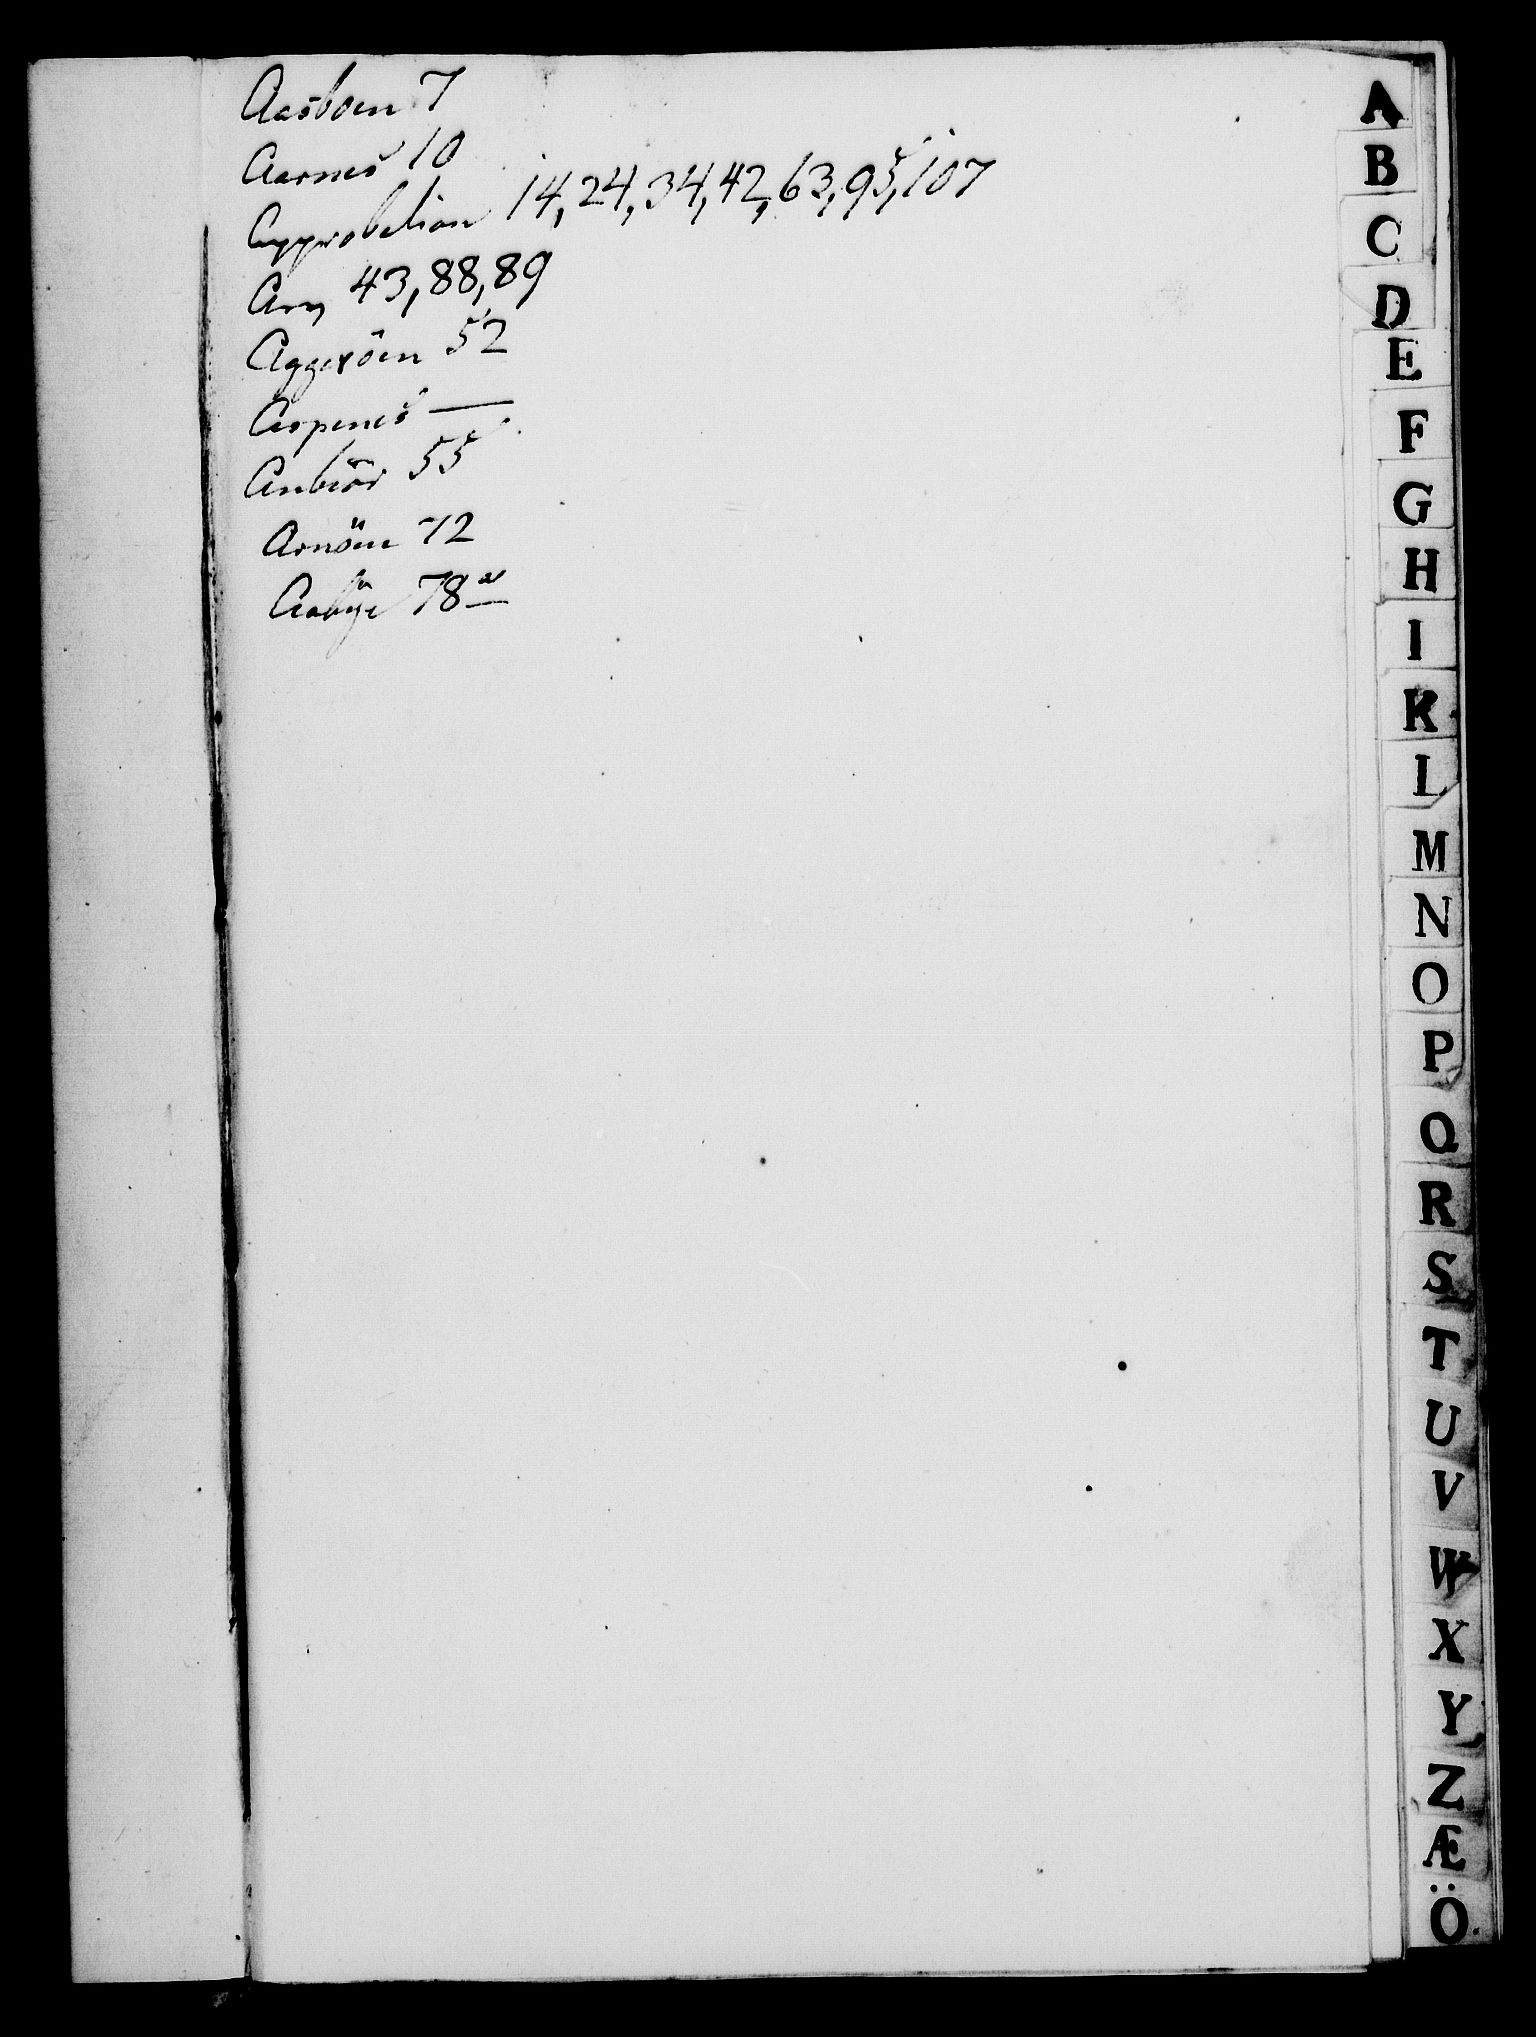 Aasboen 7
Aarnes 10
Approbation 14, 24, 34, 42, 63, 95, 107
Arv 43, 88, 89
Aggeröen 52
Aspenes —
Anbiör 55
Arnöen 72
Aabye 78 a
A
B
C
D
E
F
G
H
I
K
L
M
N
O
P
Q
R
S
T
U
V
W
X
Y
Z
Æ
Ö